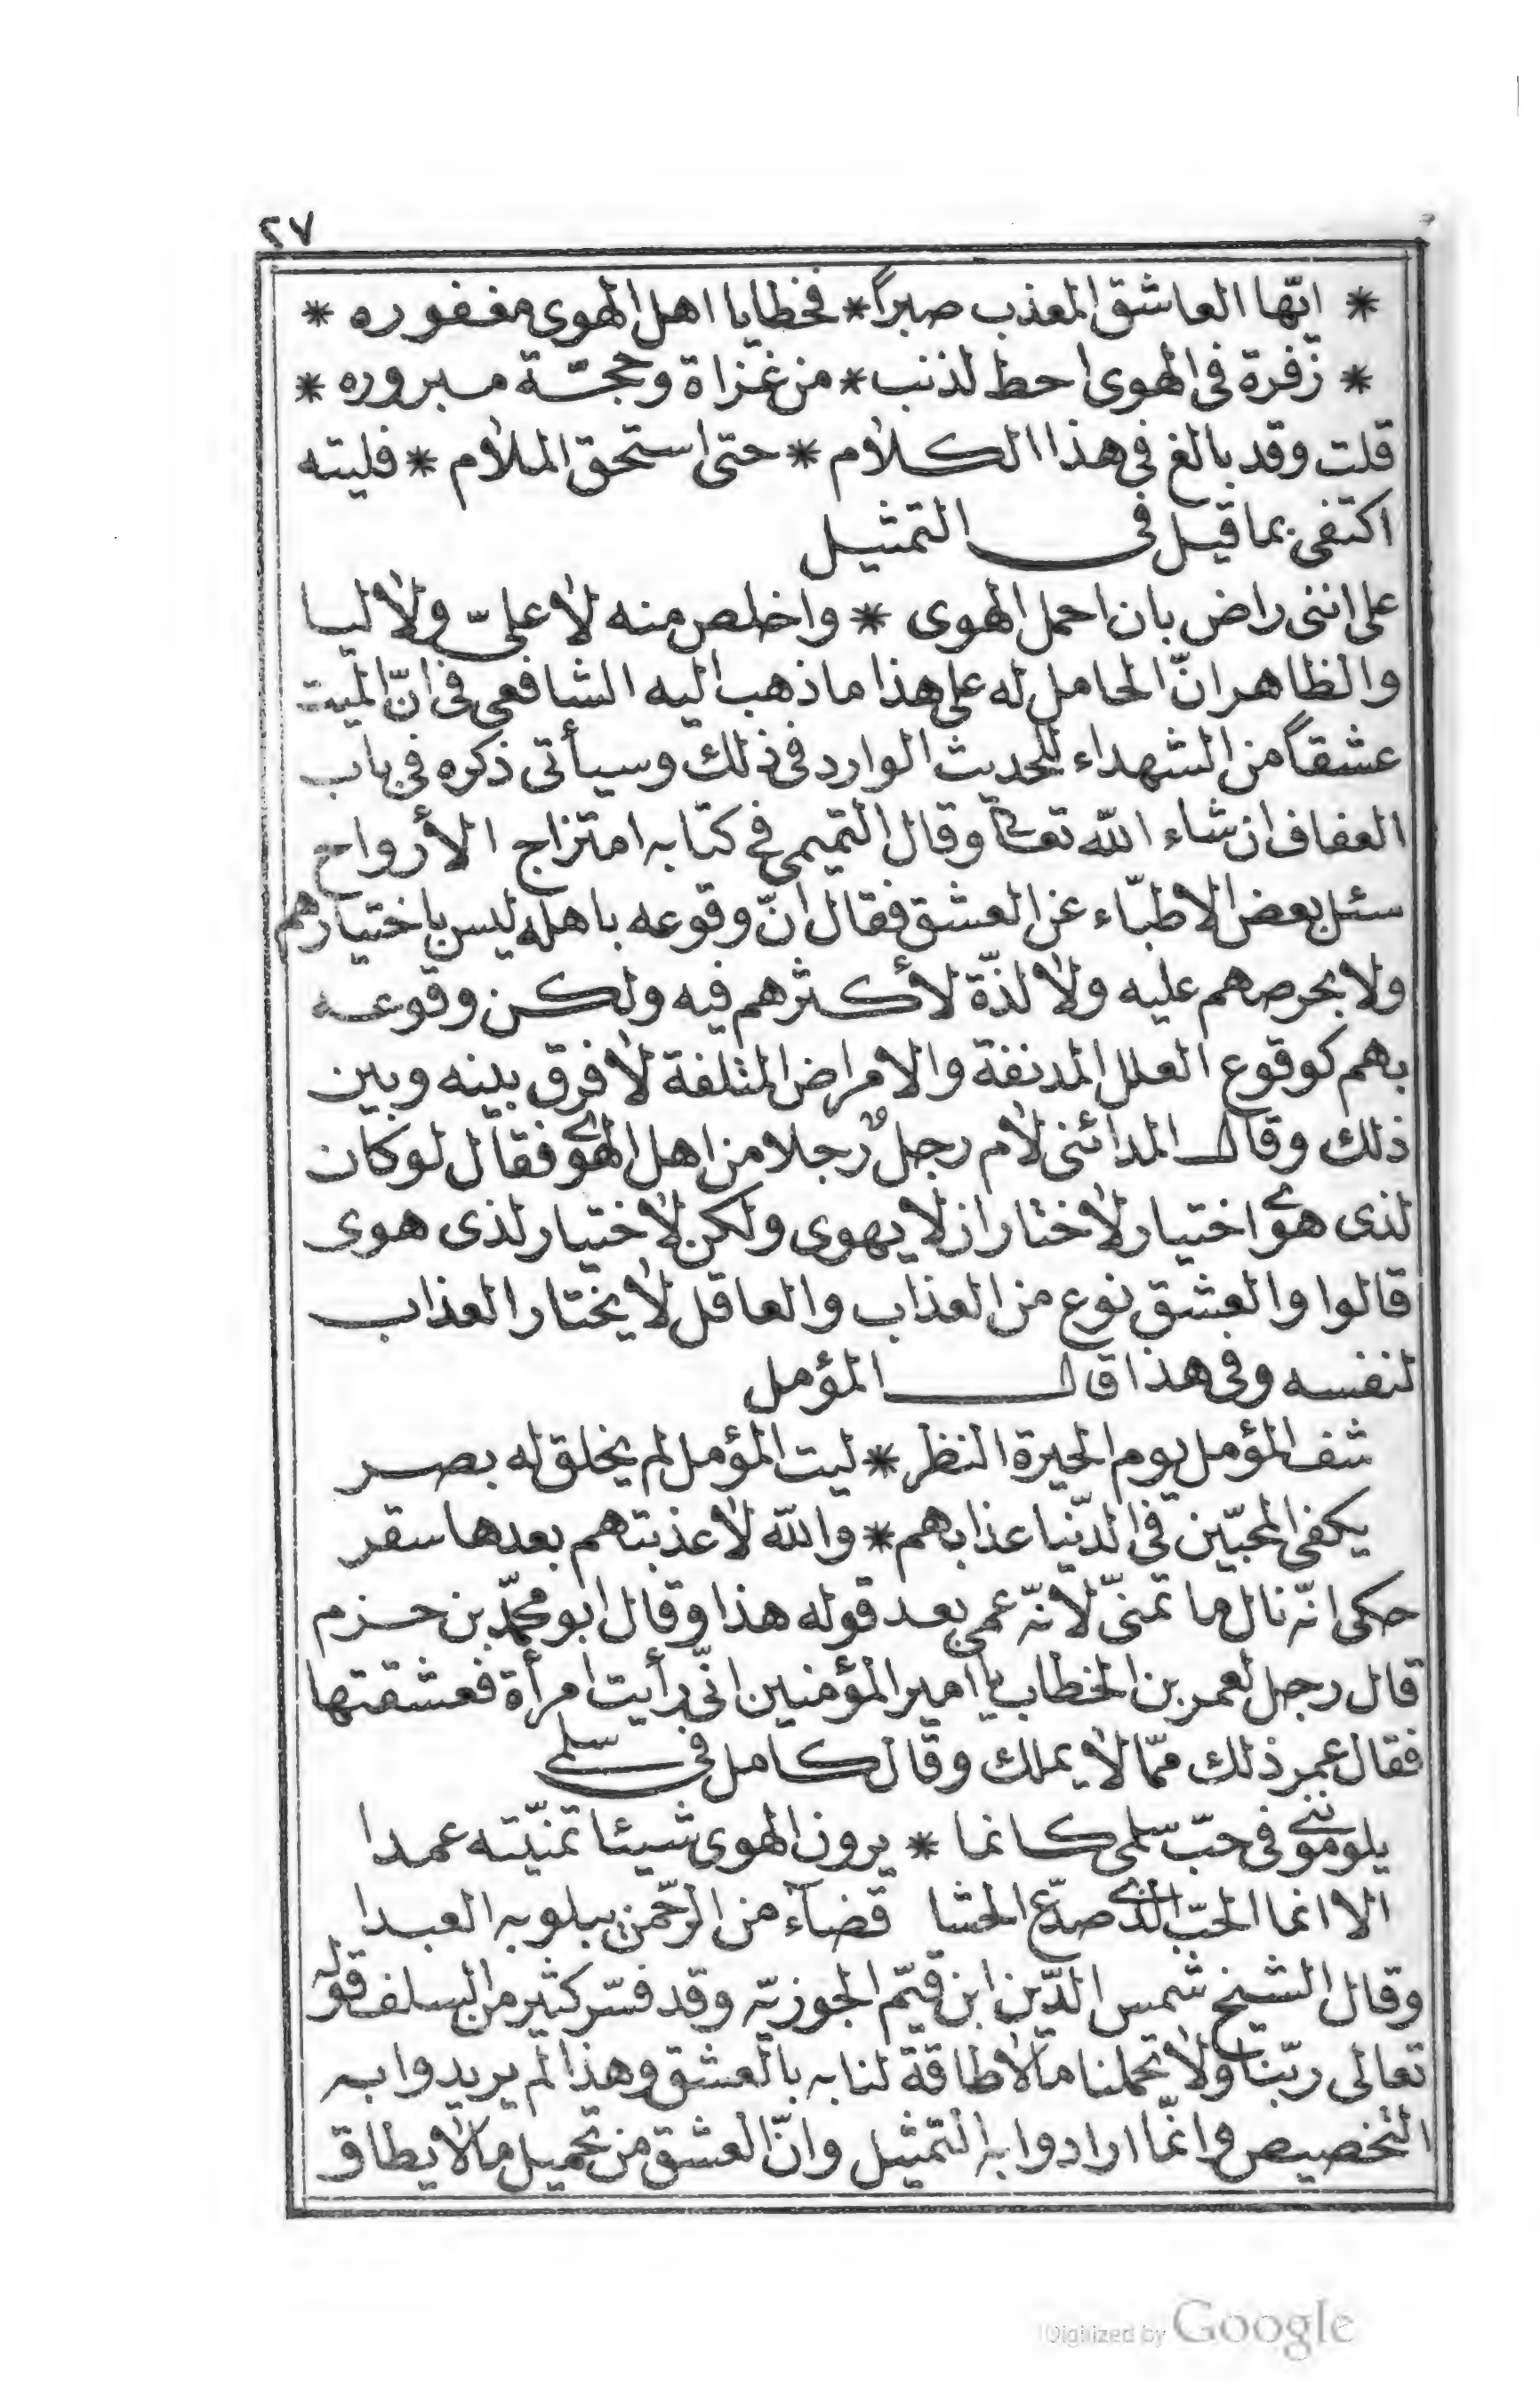 ٢٧
* ايّها العاشق المعذب صبراً * فخطايا اهل الهوى مغفوره *
* زفرة فى الهوى احط لذنب * من غزاة وحجّة مبروره *
قلت وقد بالغ فى هذا الكلام * حتى استحق الملام * فليته
اكتفى بما قيل فى التمثيل
على اننى راض بان احمل الهوى * واخلص منه لا علىّ ولا ليا
والظاهر انّ الحامل له على هذا ما ذهب اليه الشافعى فى انّ الميت
عشقاً من الشهداء للحديث الوارد فى ذلك وسيأتى ذكره فى باب
العفاف ان شاء الله تعالى وقال التميمى فى كتابه امتزاج الأرواح
سئل بعض الاطبّاء عن العشق فقال انّ وقوعه باهله ليس باختيارهم
ولا بحرصهم عليه ولا لذّة لأكثرهم فيه ولكن وقوعه
بهم كوقوع العلل المدنفة والامراض المتلفة لا فرق بينه وبين
ذلك وقال المدائنى لام رجل رجلا من اهل الهوى فقال لو كان
لذى هوى اختيار لاختار ان لا يهوى ولكن لا اختيار لذى هوى
قالوا والعشق نوع من العذاب والعاقل لا يختار العذاب
لنفسه وفى هذا قال المؤمل
شف المؤمل يوم الحيرة النظر * ليت المؤمل لم يخلق له بصر
يكفى المحبّين فى الدّنيا عذابهم * والله لا عذبتهم بعدها سقر
حكى انّه نال ما تمنّى لأنّه عمى بعد قوله هذا وقال ابو محمّد بن حزم
قال رجل لعمر بن الخطاب يا امير المؤمنين انّى رأيت امرأة فعشقتها
فقال عمر ذلك ممّا لا يملك وقال كامل فى سلمى
يلوموننى فى حبّ سلمى كانما * يرون الهوى شيئا تمنّيته عمدا
الا انما الحبّ الذى صدّع الحشا قضآء من الرّحمن يبلو به العبدا
وقال الشيخ شمس الدّين ابن قيّم الجوزيّه وقد فسّر كثير من السلف قوله
تعالى ربّنا ولا تحملنا ما لا طاقة لنا به بالعشق وهذا لم يريدوا به
التخصيص وانّما ارادوا به التّمثيل وانّ العشق من تحميل ما لا يطاق
Digitized by Google